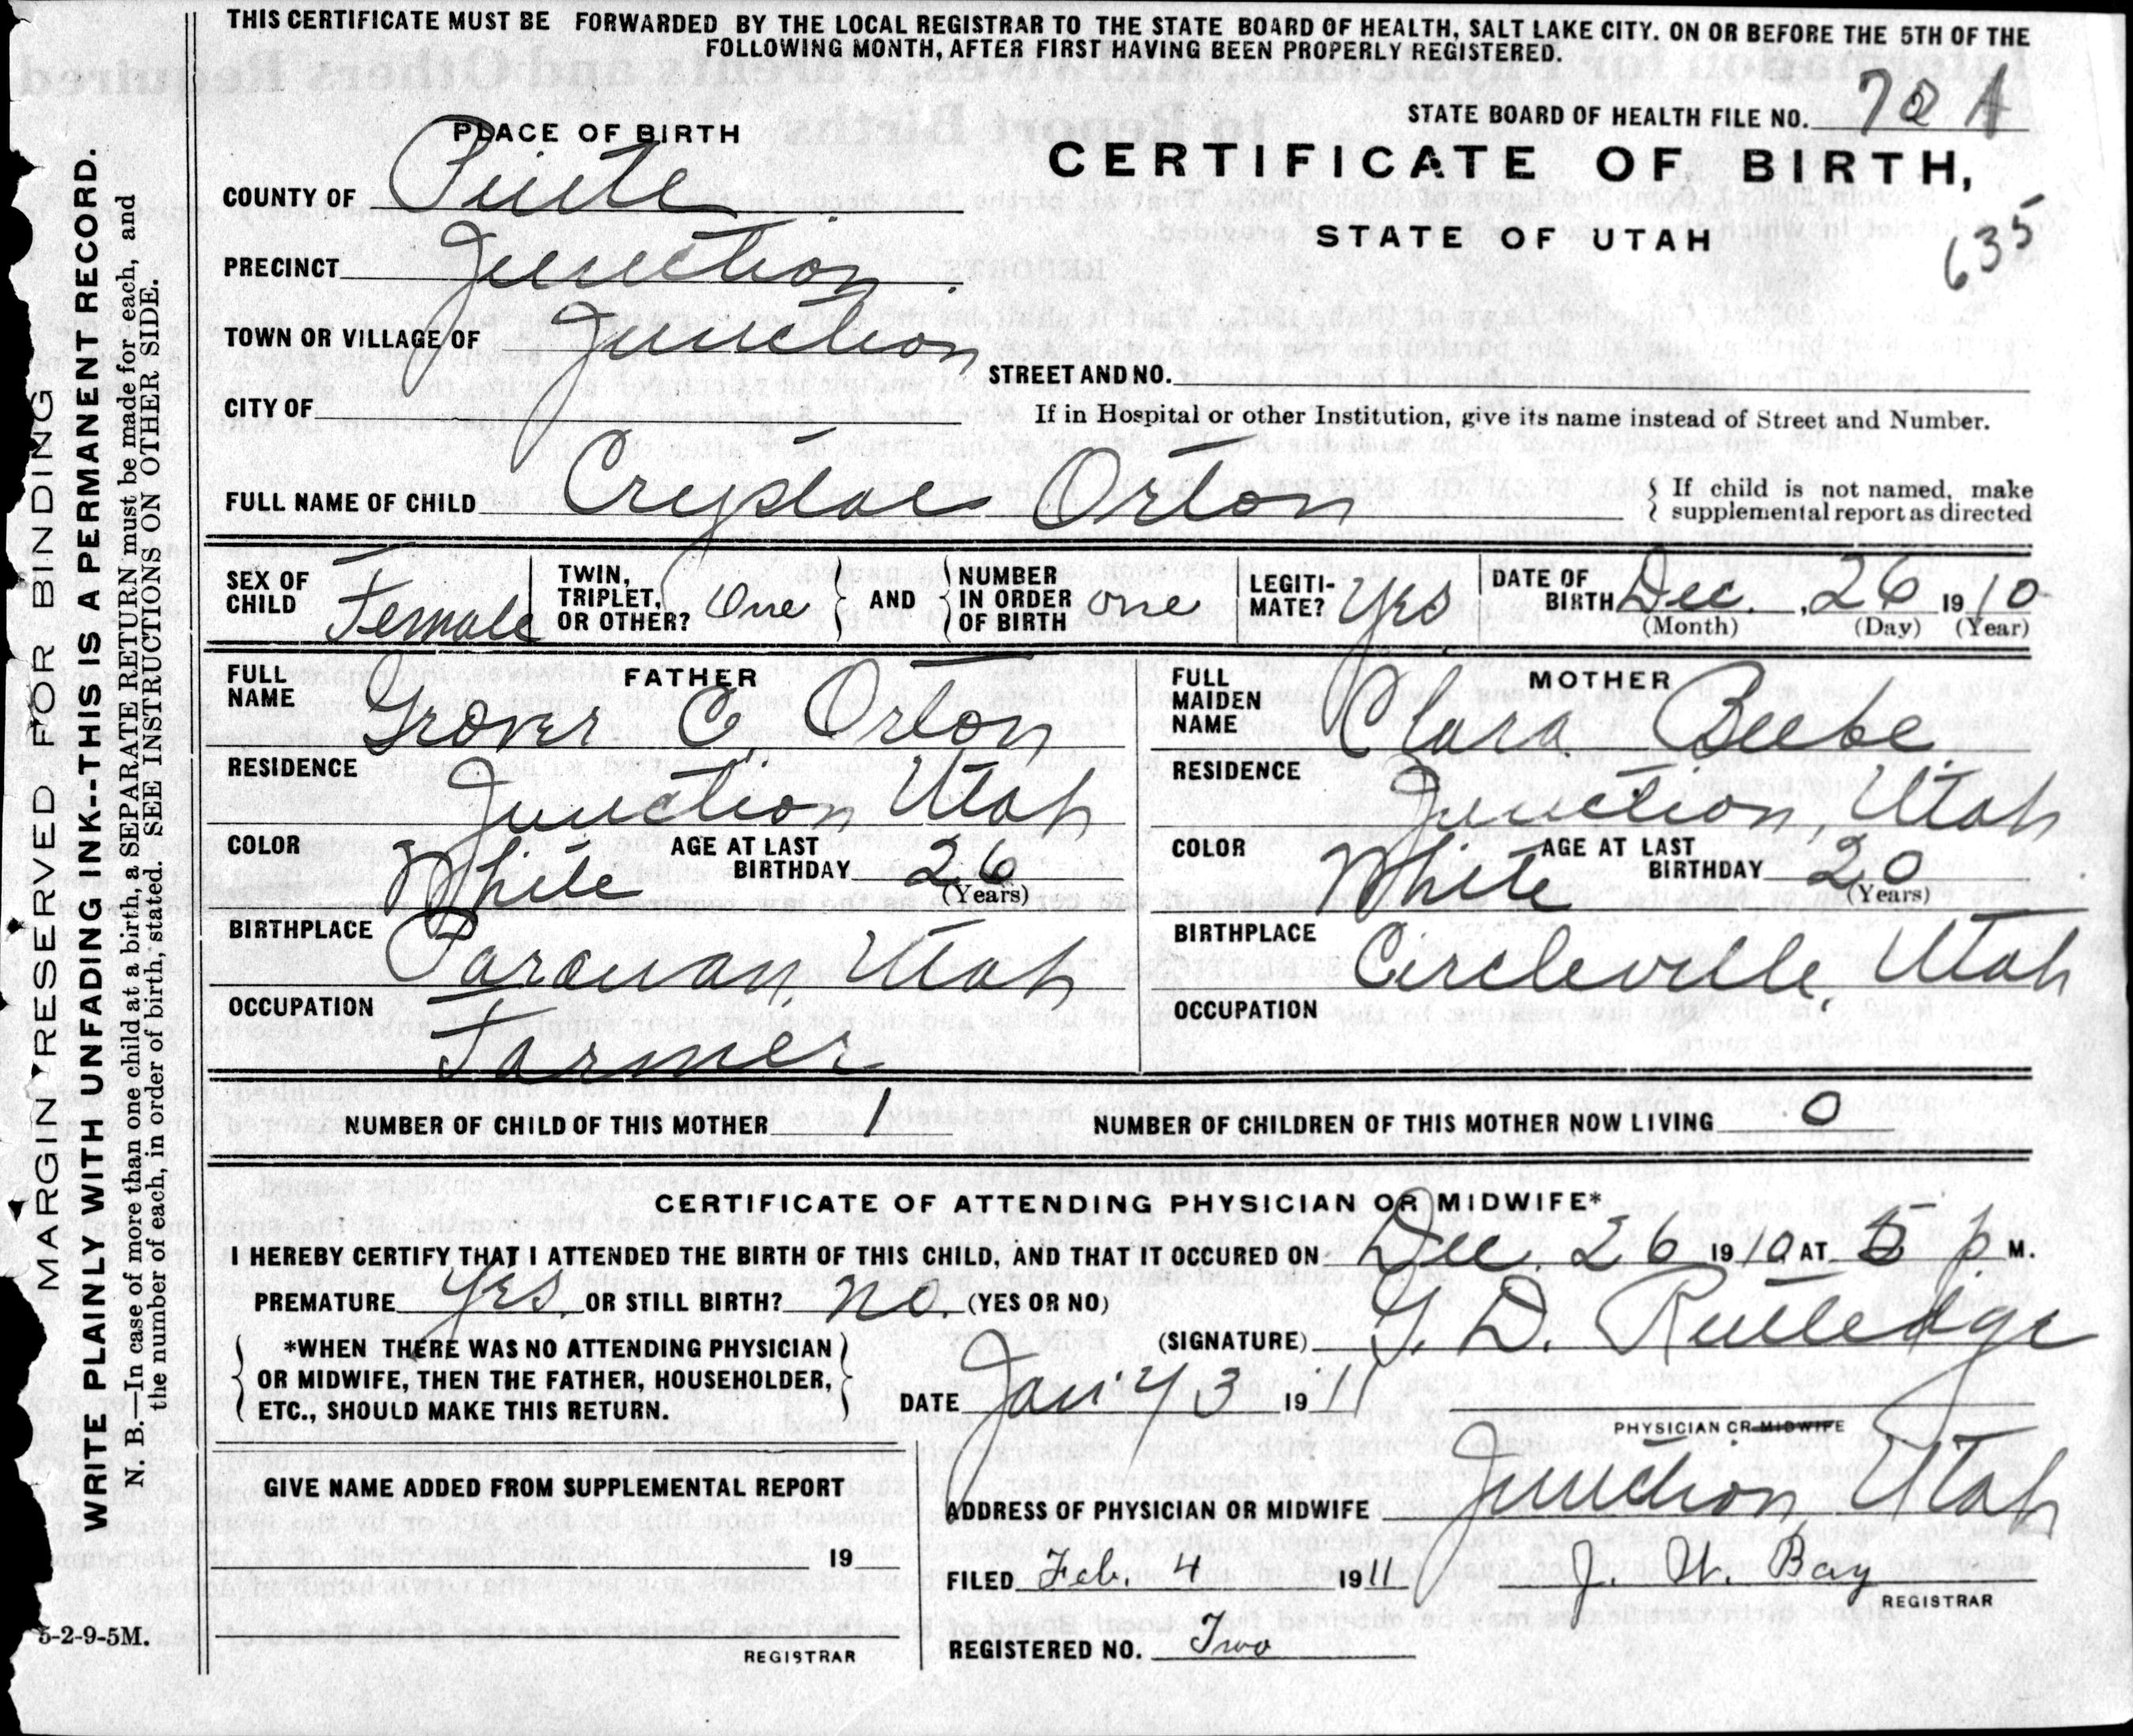 THIS CERTIFICATE MUST BE FORWARDED BY THE LOCAL REGISTRAR TO THE STATE BOARD OF HEALTH, SALT LAKE CITY. ON OR BEFORE THE 5TH OF THE
FOLLOWING MONTH, AFTER FIRST HAVING BEEN PROPERLY REGISTERED.
MARGIN RESERVED FOR BINDING
WRITE PLAINLY WITH UNFADING INK--THIS IS A PERMANENT RECORD.
N. B.—In case of more than one child at a birth, a SEPARATE RETURN must be made for each, and
the number of each, in order of birth, stated. SEE INSTRUCTIONS ON OTHER SIDE.
STATE BOARD OF HEALTH FILE NO.
PLACE OF BIRTH
CERTIFICATE OF BIRTH,
STATE OF UTAH
635
COUNTY OF Piute
PRECINCT Junction
TOWN OR VILLAGE OF Junction
STREET AND NO.
CITY OF
If in Hospital or other Institution, give its name instead of Street and Number.
FULL NAME OF CHILD Crystal Orton
If child is not named, make
supplemental report as directed
SEX OF CHILD Female
TWIN, TRIPLET, OR OTHER? One AND NUMBER IN ORDER OF BIRTH one
LEGITIMATE? Yes
DATE OF BIRTH Dec. 26 1910
(Month) (Day) (Year)
FATHER
FULL NAME Grover C. Orton
RESIDENCE Junction Utah
COLOR White AGE AT LAST BIRTHDAY 26
(Years)
BIRTHPLACE Parowan, Utah
OCCUPATION Farmer
MOTHER
FULL MAIDEN NAME Clara Beebe
RESIDENCE Junction, Utah
COLOR White AGE AT LAST BIRTHDAY 20
(Years)
BIRTHPLACE Circleville, Utah
OCCUPATION
NUMBER OF CHILD OF THIS MOTHER 1 NUMBER OF CHILDREN OF THIS MOTHER NOW LIVING 0
CERTIFICATE OF ATTENDING PHYSICIAN OR MIDWIFE*
I HEREBY CERTIFY THAT I ATTENDED THE BIRTH OF THIS CHILD, AND THAT IT OCCURED ON Dec. 26 1910 AT 5 p M.
PREMATURE Yes. OR STILL BIRTH? No. (YES OR NO)
*WHEN THERE WAS NO ATTENDING PHYSICIAN
OR MIDWIFE, THEN THE FATHER, HOUSEHOLDER,
ETC., SHOULD MAKE THIS RETURN.
(SIGNATURE) G. D. Rutledge
DATE Jan'y 3 1911
PHYSICIAN OR MIDWIFE
GIVE NAME ADDED FROM SUPPLEMENTAL REPORT
19
REGISTRAR
ADDRESS OF PHYSICIAN OR MIDWIFE Junction, Utah
FILED Feb. 4 1911 J. W. Bay
REGISTRAR
REGISTERED NO. Two
5-2-9-5M.